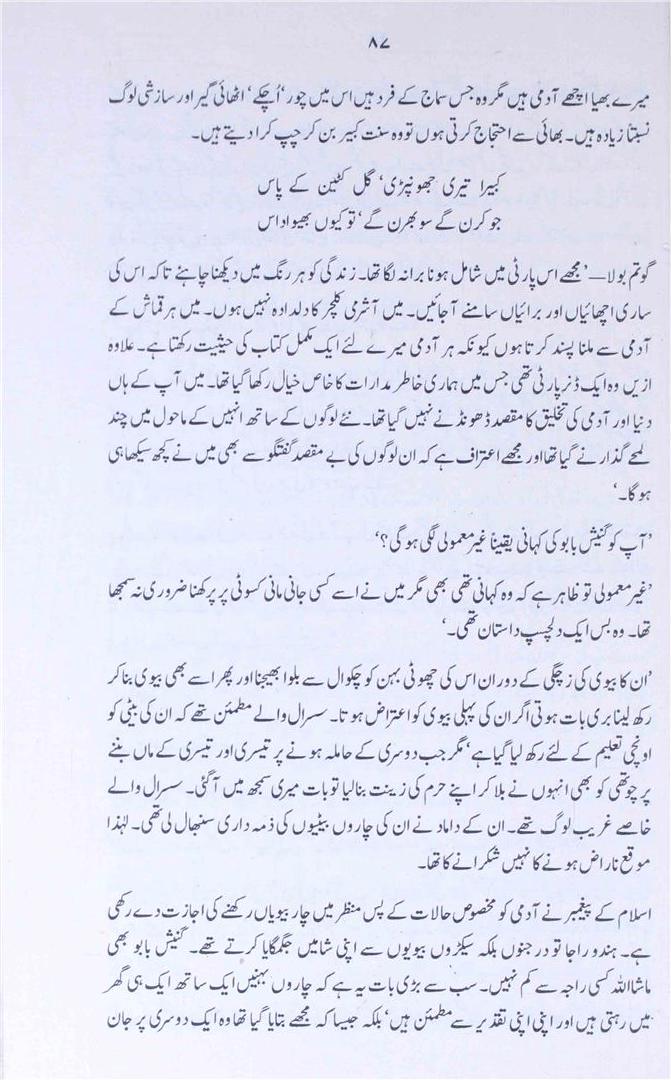 ۸۷
میرے بھیا اچھے آدمی ہیں مگر وہ جس سماج کے فرد ہیں اس میں چور‘ اُچکے‘ اٹھائی گیر اور سازشی لوگ
نسبتاً زیادہ ہیں۔ بھائی سے احتجاج کرتی ہوں تو وہ سنت کبیر بن کر چپ کرا دیتے ہیں۔
کبیرا تیری جھونپڑی‘ گل کٹین کے پاس
جو کرن گے سو بھرن گے‘ تو کیوں بھیو اداس
گوتم بولا—’مجھے اس پارٹی میں شامل ہونا برا نہ لگا تھا۔ زندگی کو ہر رنگ میں دیکھنا چاہئے تاکہ اس کی
ساری اچھائیاں اور برائیاں سامنے آجائیں۔ میں آشرمی کلچر کا دلدادہ نہیں ہوں۔ میں ہر قماش کے
آدمی سے ملنا پسند کرتا ہوں کیونکہ ہر آدمی میرے لئے ایک مکمل کتاب کی حیثیت رکھتا ہے۔ علاوہ
ازیں وہ ایک ڈنر پارٹی تھی جس میں ہماری خاطر مدارات کا خاص خیال رکھا گیا تھا۔ میں آپ کے ہاں
دنیا اور آدمی کی تخلیق کا مقصد ڈھونڈنے نہیں گیا تھا۔ نئے لوگوں کے ساتھ انہیں کے ماحول میں چند
لمحے گذارنے گیا تھا اور مجھے اعتراف ہے کہ ان لوگوں کی بے مقصد گفتگو سے بھی میں نے کچھ سیکھا ہی
ہوگا۔‘
’آپ کو گنیش بابو کی کہانی یقیناً غیر معمولی لگی ہوگی؟‘
’غیر معمولی تو ظاہر ہے کہ وہ کہانی تھی بھی مگر میں نے اسے کسی جانی مانی کسوٹی پر پرکھنا ضروری نہ سمجھا
تھا۔ وہ بس ایک دلچسپ داستان تھی۔‘
’ان کا بیوی کی زچگی کے دوران اس کی چھوٹی بہن کو چکوال سے بلوا بھیجنا اور پھر اسے بھی بیوی بنا کر
رکھ لینا بری بات ہوتی اگر ان کی پہلی بیوی کو اعتراض ہوتا۔ سسرال والے مطمئن تھے کہ ان کی بیٹی کو
اونچی تعلیم کے لئے رکھ لیا گیا ہے‘ مگر جب دوسری کے حاملہ ہونے پر تیسری اور تیسری کے ماں بننے
پر چوتھی کو بھی انہوں نے بلا کر اپنے حرم کی زینت بنالیا تو بات میری سمجھ میں آگئی۔ سسرال والے
خاصے غریب لوگ تھے۔ ان کے داماد نے ان کی چاروں بیٹیوں کی ذمہ داری سنبھال لی تھی۔ لہٰذا
موقع ناراض ہونے کا نہیں شکرانے کا تھا۔
اسلام کے پیغمبر نے آدمی کو مخصوص حالات کے پس منظر میں چار بیویاں رکھنے کی اجازت دے رکھی
ہے۔ ہندو راجا تو درجنوں بلکہ سیکڑوں بیویوں سے اپنی شامیں جگمگایا کرتے تھے۔ گنیش بابو بھی
ماشااللہ کسی راجہ سے کم نہیں۔ سب سے بڑی بات یہ ہے کہ چاروں بہنیں ایک ساتھ ایک ہی گھر
میں رہتی ہیں اور اپنی اپنی تقدیر سے مطمئن ہیں‘ بلکہ جیسا کہ مجھے بتایا گیا تھا وہ ایک دوسری پر جان